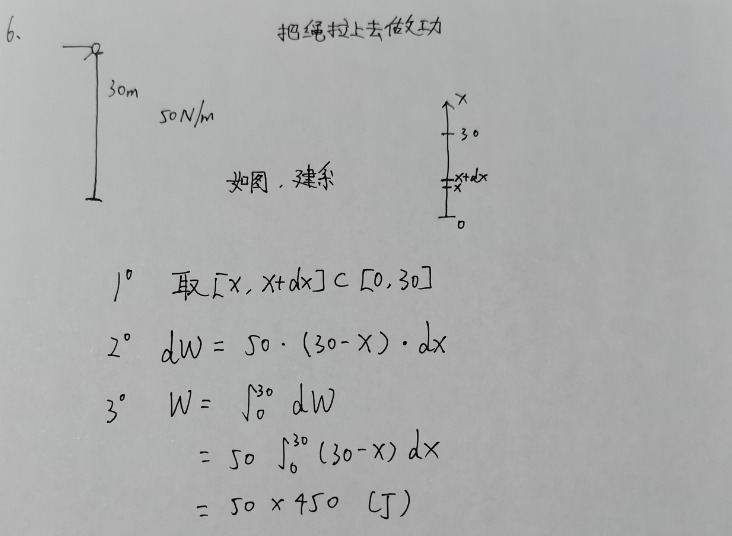 6、
把绳拉上去做功
30m
50N/m
x
30
x+dx
x
0
如图，建系
1° 取[x, x+dx]⊂[0,30]
2° dW = 50·(30-x)·dx
3° W = ∫₀³⁰ dW
= 50 ∫₀³⁰ (30-x) dx
= 50 × 450 (J)